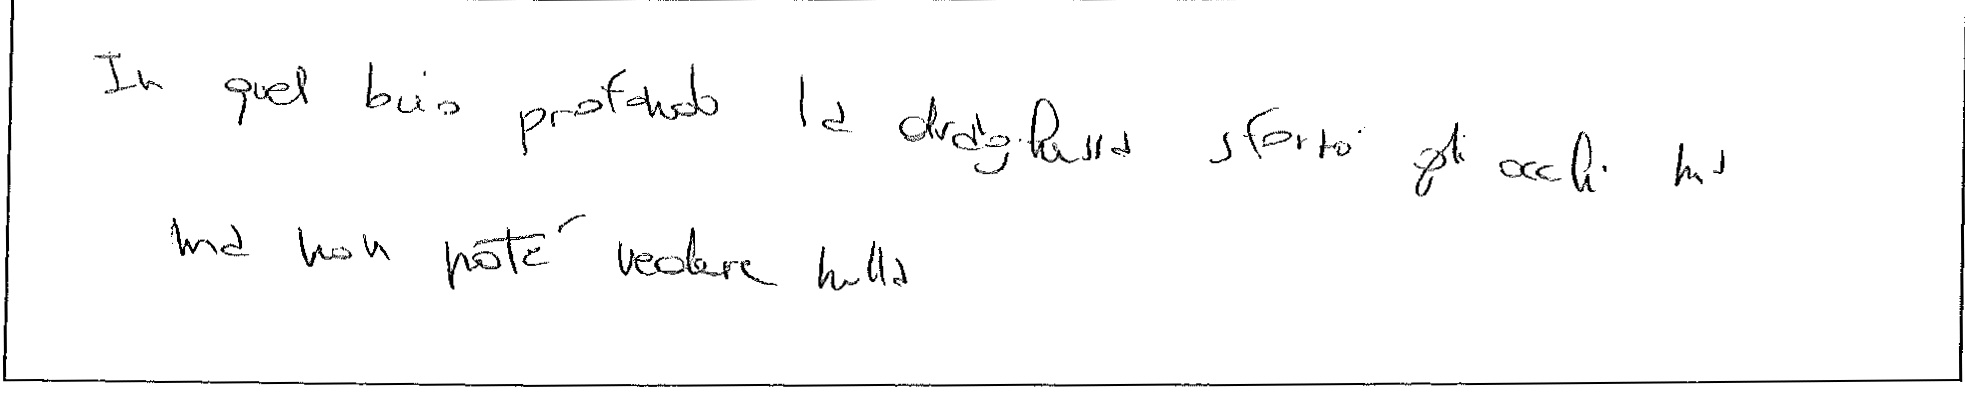 In quel buio profondo la draghessa sforzò gli occhi ma
ma non poté vedere nulla